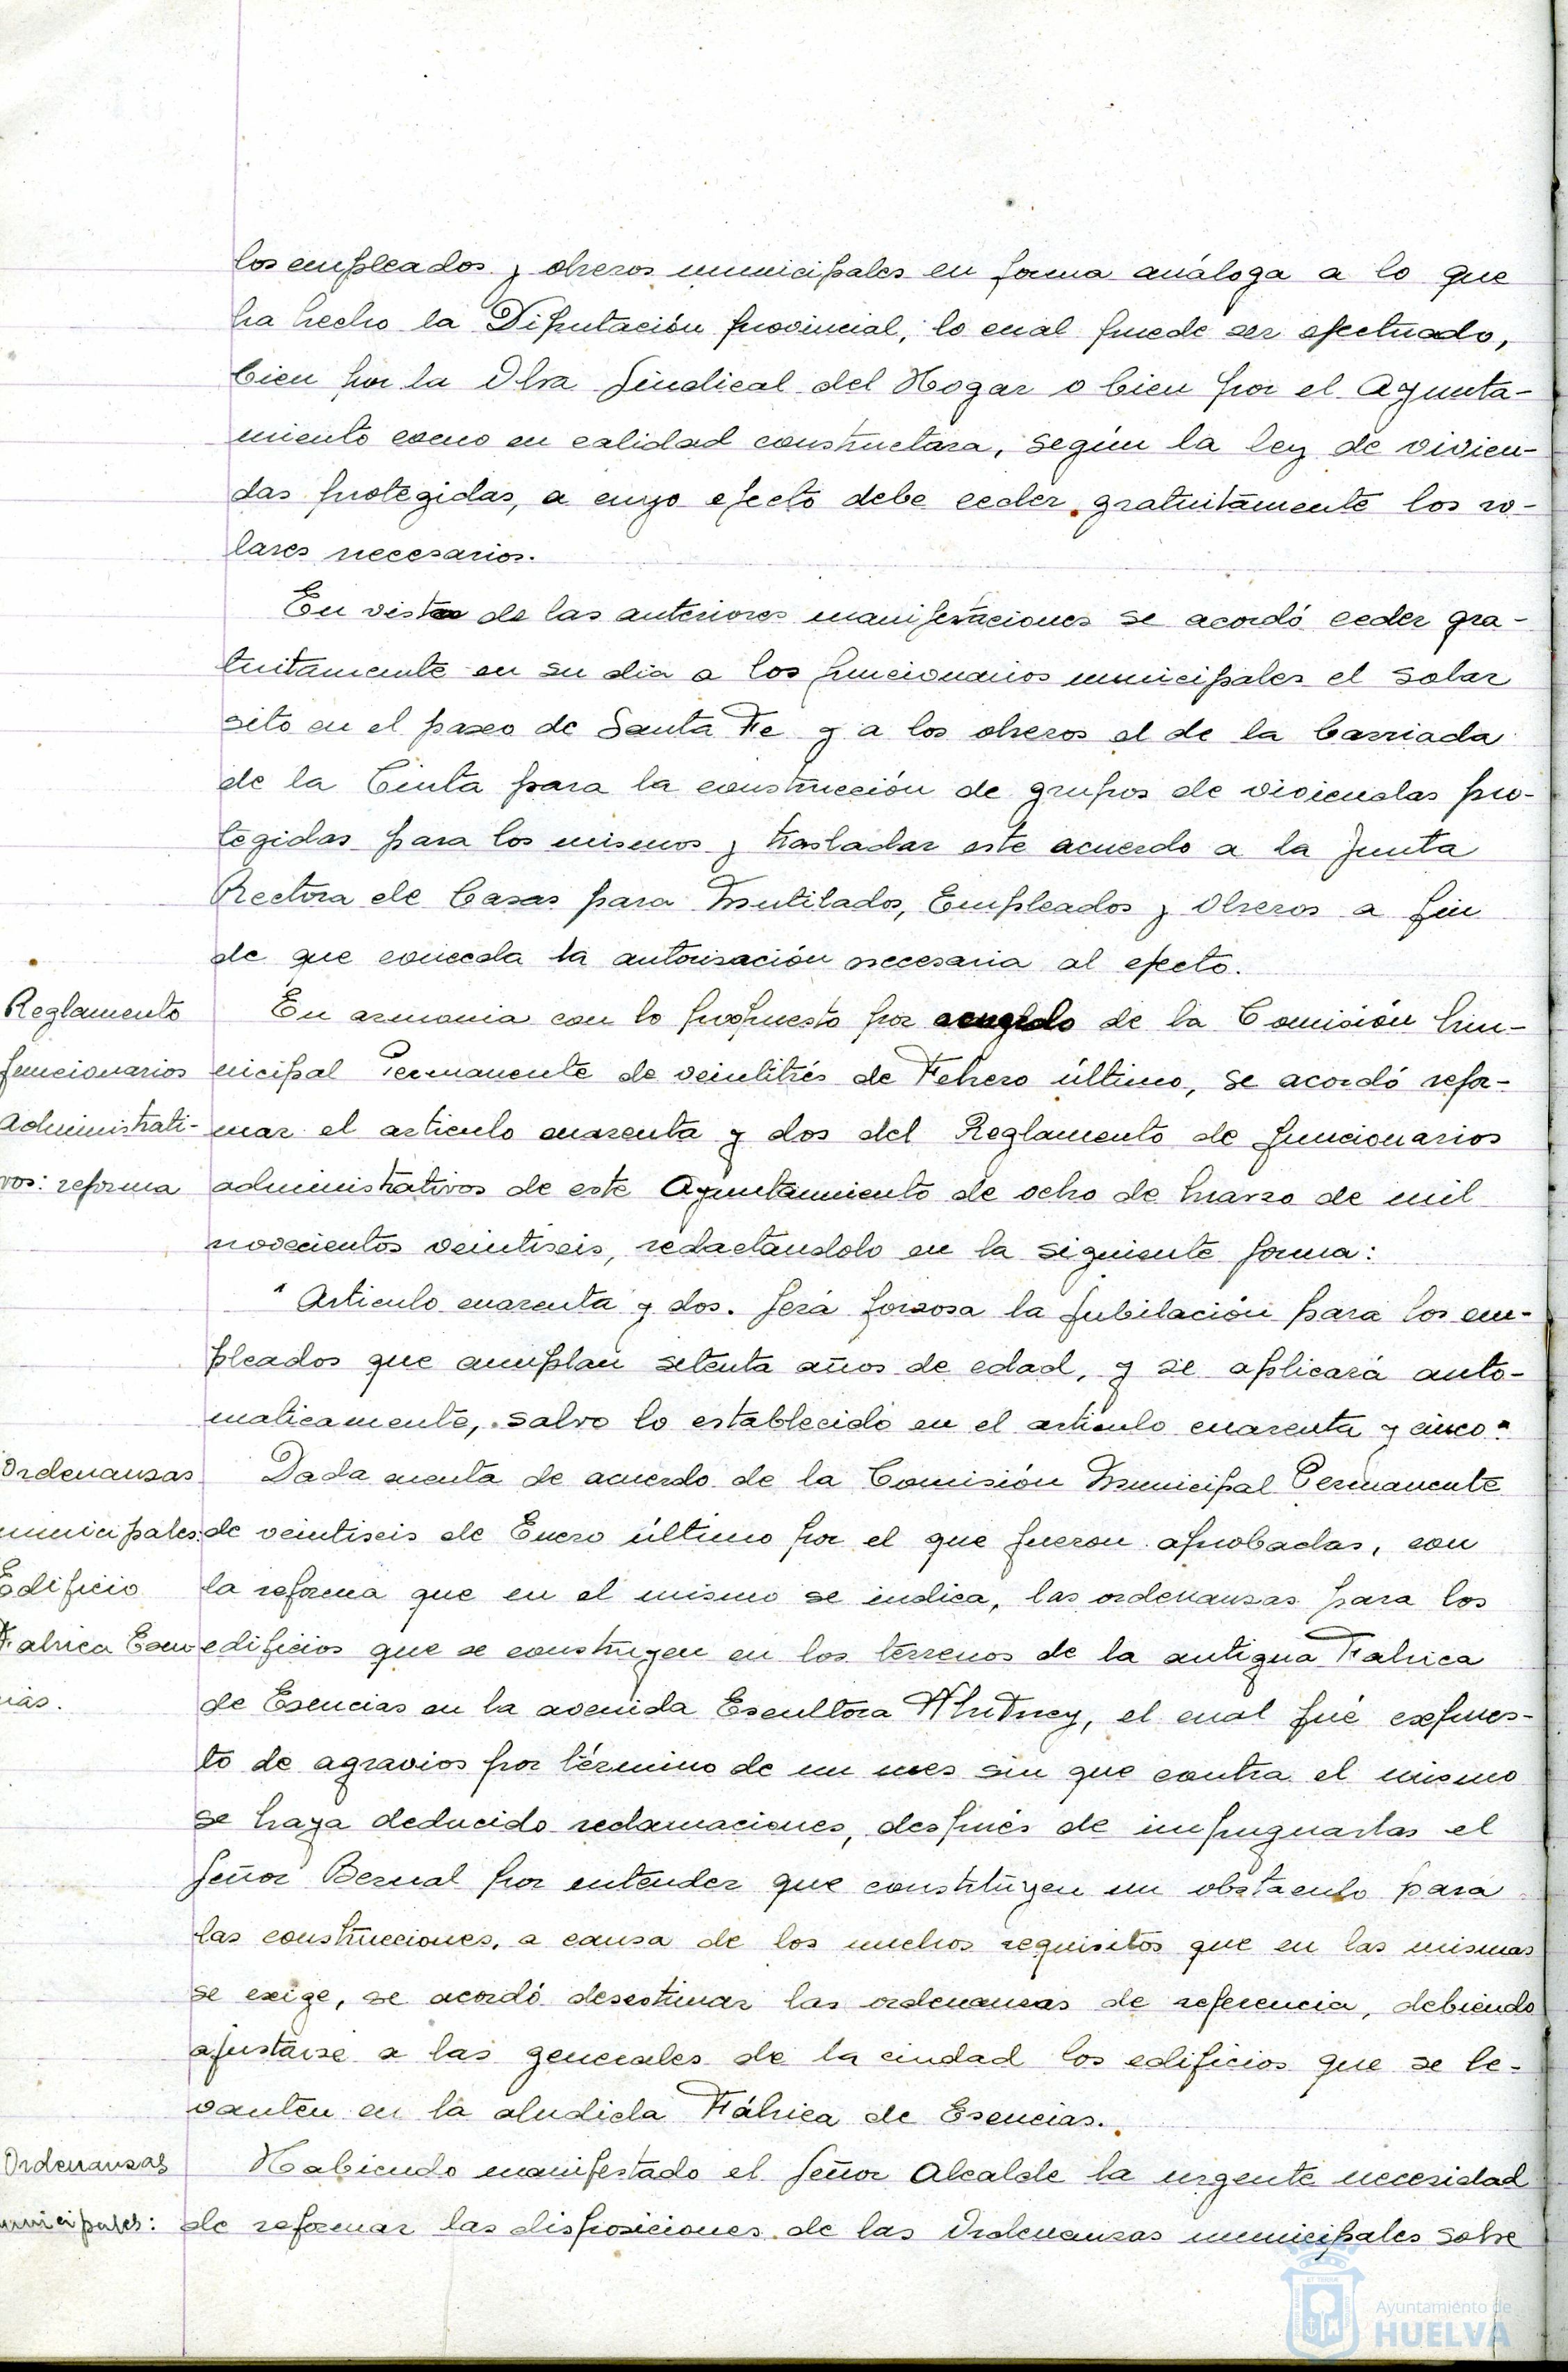 los empleados y obreros municipales en forma análoga a lo que
ha hecho la Diputación provincial, lo cual puede ser efectuado,
bien por la Obra Sindical del Hogar o bien por el Ayunta-
miento como en calidad constructara, según la ley de vivien-
das protegidas, a cuyo efecto debe ceder gratuitamente los so-
lares necesarios.
En vista de las anteriores manifestaciones se acordó ceder gra-
tuitamente en su dia a los funcionarios municipales el solar
sito en el paseo de Santa Fe y a los obreros el de la barriada
de la Cinta para la construcción de grupos de viviendas pro-
tegidas para los mismos y trasladar este acuerdo a la Junta
Rectora de Casas para Mutilados, Empleados y Obreros a fin
de que conceda la autorisación necesaria al efecto.
Reglamento
funcionarios
administrati-
vos: reforma
En armonia con lo propuesto por acuerdo de la Comisión Mu-
nicipal Permanente de veintitrés de Febrero último, se acordó refor-
mar el articulo cuarenta y dos del Reglamento de funcionarios
administrativos de este Ayuntamiento de ocho de Marzo de mil
novecientos veintiseis, redactandolo en la siguiente forma:
"Articulo cuarenta y dos. Será forzosa la jubilación para los em-
pleados que cumplan setenta años de edad, y se aplicará auto-
maticamente, salvo lo establecido en el articulo cuarenta y cinco"
Ordenansas
municipales:
Edificio
Fabrica Esen-
cias.
Dada cuenta de acuerdo de la Comisión Municipal Permanente
de veintiseis de Enero último por el que fueron aprobadas, con
la reforma que en el mismo se indica, las ordenansas para los
edificios que se construyen en los terrenos de la antigua Fabrica
de Esencias en la avenida Escultora Whitney, el cual fué expues-
to de agravios por término de un mes sin que contra el mismo
se haya deducido reclamaciones, después de impugnarlas el
Señor Bernal por entender que constituyen un obstaculo para
las construcciones, a causa de los muchos requisitos que en las mismas
se exige, se acordó desestimar las ordenansas de referencia, debiendo
ajustarse a las generales de la ciudad los edificios que se le-
vanten en la aludida Fábrica de Esencias.
Ordenansas
municipales:
Habiendo manifestado el Señor Alcalde la urgente necesidad
de reformar las disposiciones de las Ordenansas municipales sobre
Ayuntamiento de
HUELVA